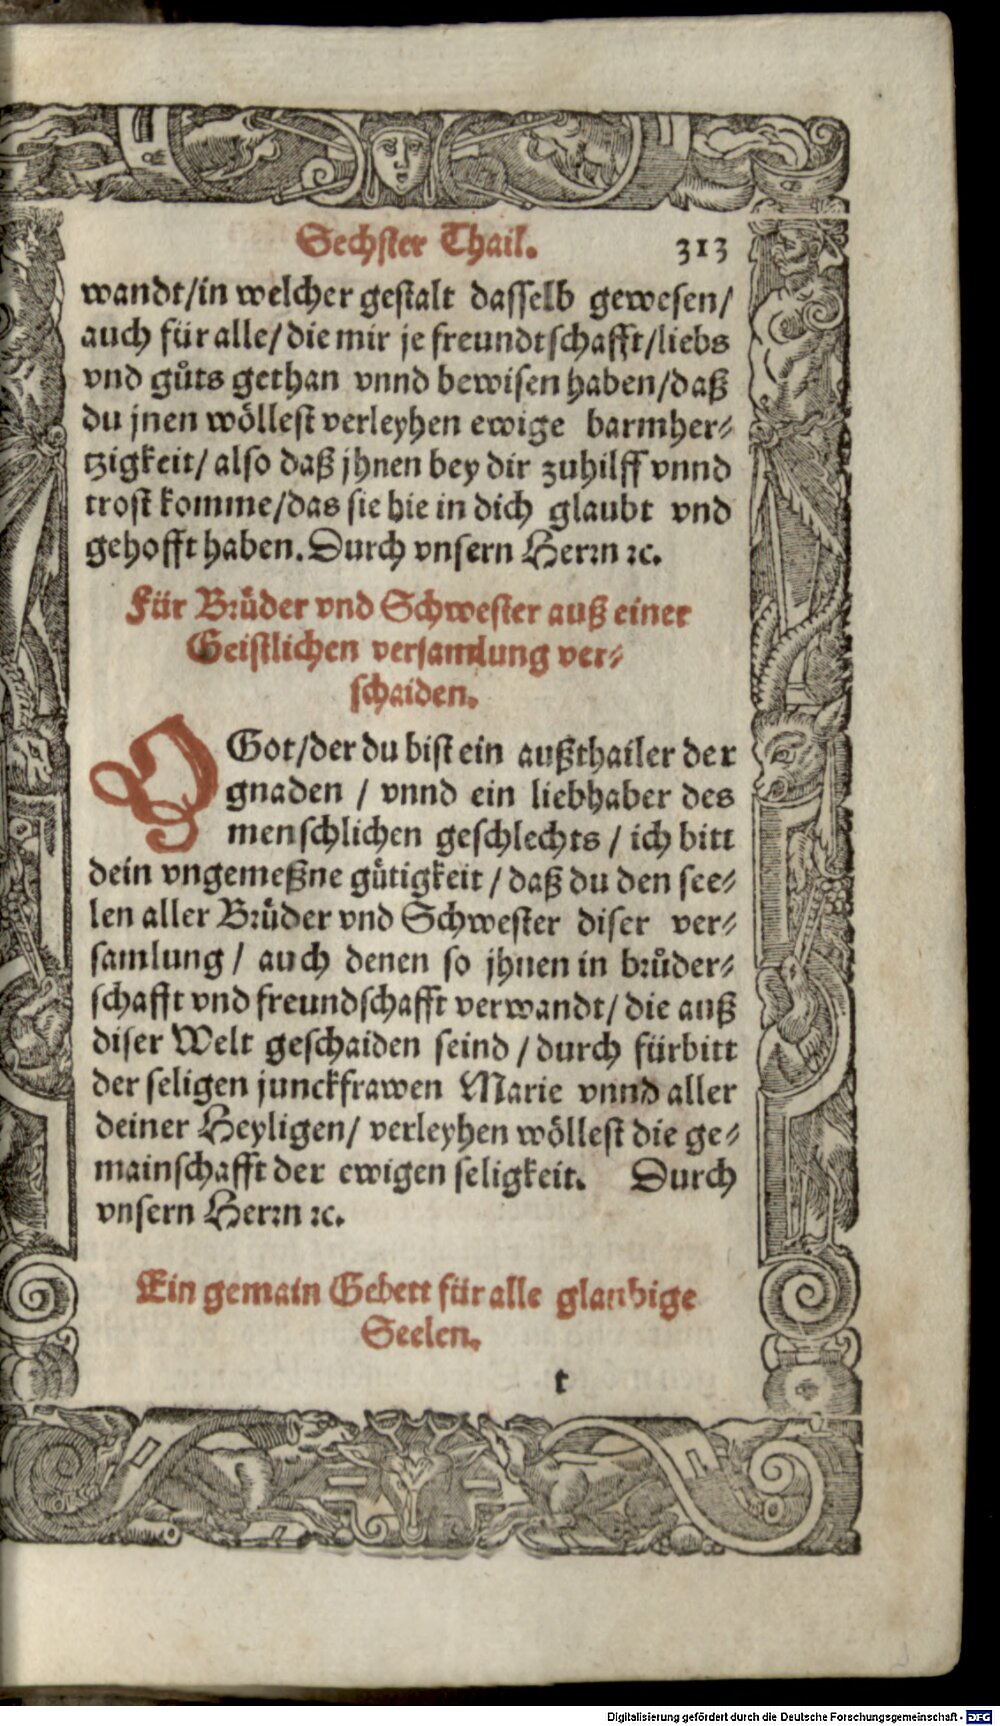 Sechster Thail. 313
wandt/in welcher gestalt dasselb gewesen/
auch für alle/die mir je freundtschafft/liebs
vnd gůts gethan vnnd bewisen haben/daß
du jnen wöllest verleyhen ewige barmher-
tzigkeit/ also daß jhnen bey dir zuhilff vnnd
trost komme/das sie hie in dich glaubt vnd
gehofft haben. Durch vnsern Herrn ꝛc.
Für Brüder vnd Schwester auß einer
Geistlichen versamlung ver-
schaiden.
O Got/der du bist ein außthailer der
gnaden / vnnd ein liebhaber des
menschlichen geschlechts / ich bitt
dein vngemeßne gütigkeit / daß du den see-
len aller Brüder vnd Schwester diser ver-
samlung / auch denen so jhnen in brůder-
schafft vnd freundschafft verwandt/ die auß
diser Welt geschaiden seind / durch fürbitt
der seligen junckfrawen Marie vnnd aller
deiner Heyligen/ verleyhen wöllest die ge-
mainschafft der ewigen seligkeit. Durch
vnsern Herrn ꝛc.
Ein gemain Gebett für alle glaubige
Seelen.
t
Digitalisierung gefördert durch die Deutsche Forschungsgemeinschaft - DFG